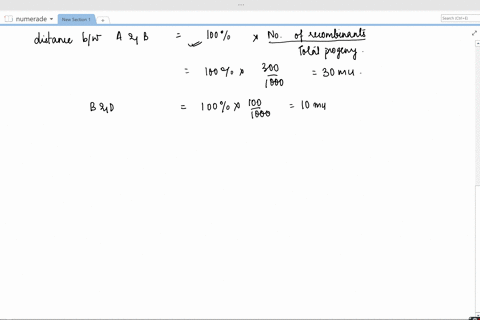 numerade
New Section 1
Search (Ctrl+E)
distance b/w A & B = 100% × No. of recombinants
Total progeny.
= 100% × 300/1000 = 30 mu.
B & D = 100% × 100/1000 = 10 mu